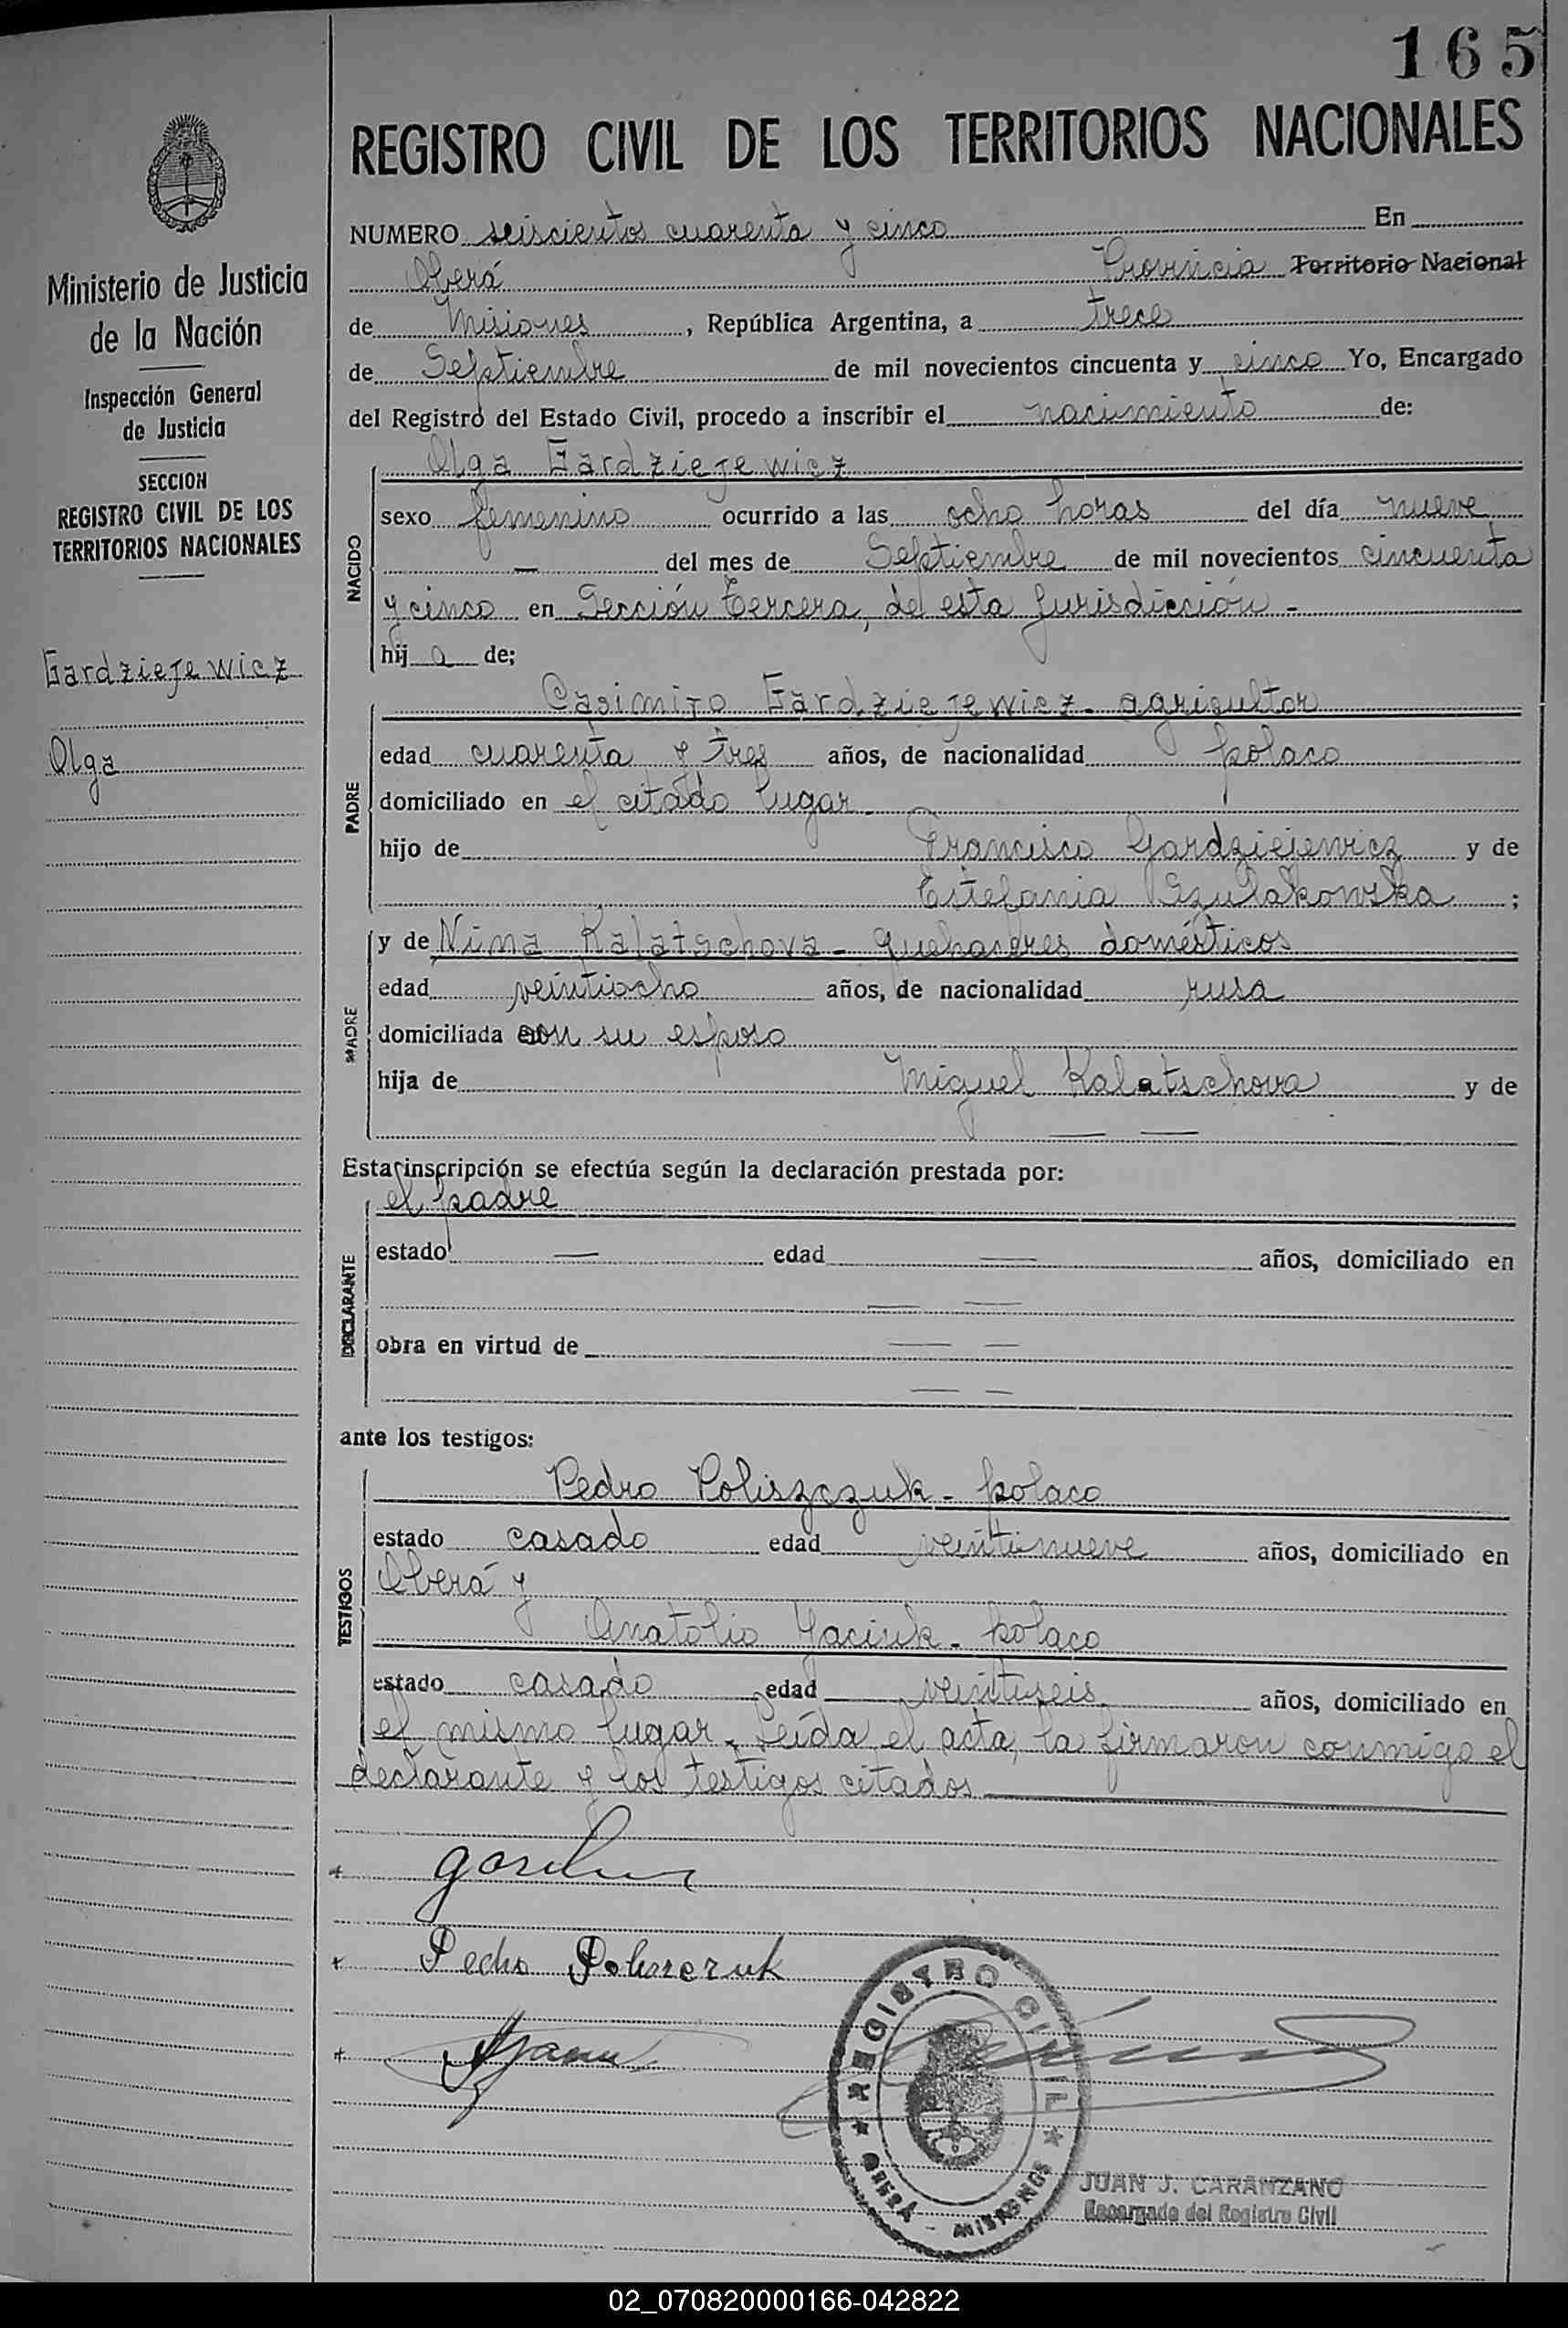 165
REGISTRO CIVIL DE LOS TERRITORIOS NACIONALES
Ministerio de Justicia
de la Nación
Inspección General
de Justicia
SECCION
REGISTRO CIVIL DE LOS
TERRITORIOS NACIONALES
Gardziejewicz
Olga
NUMERO seiscientos cuarenta y cinco En
Oberá Provincia Territorio Nacional
de Misiones, República Argentina, a trece
de Septiembre de mil novecientos cincuenta y cinco Yo, Encargado
del Registro del Estado Civil, procedo a inscribir el nacimiento de:
NACIDO
Olga Gardziejewicz
sexo femenino ocurrido a las ocho horas del día nueve
— del mes de Septiembre de mil novecientos cincuenta
y cinco en Sección Tercera, de esta jurisdicción -
hija de;
PADRE
Casimiro Gardziejewicz - agricultor
edad cuarenta y tres años, de nacionalidad polaco
domiciliado en el citado lugar -
hijo de Francisco Gardziejewicz y de
Estefania ;
MADRE
y de Nina Kalatschova - quehaceres domésticos
edad veintiocho años, de nacionalidad rusa
domiciliada con su esposo
hija de Miguel Kalatschova y de
— —
Esta inscripción se efectúa según la declaración prestada por:
DECLARANTE
el padre
estado — edad — años, domiciliado en
— —
obra en virtud de — —
— —
ante los testigos:
TESTIGOS
Pedro Poliszczuk - polaco
estado casado edad veintinueve años, domiciliado en
Oberá y
Anatolio Yaciuk - polaco
estado casado edad veintiseis años, domiciliado en
el mismo lugar. Leída el acta, la firmaron conmigo el
declarante y los testigos citados
Pedro Poliszczuk
REGISTRO CIVIL
OBERÁ - MISIONES
JUAN J. CARANZANO
Encargado del Registro Civil
02_070820000166-042822